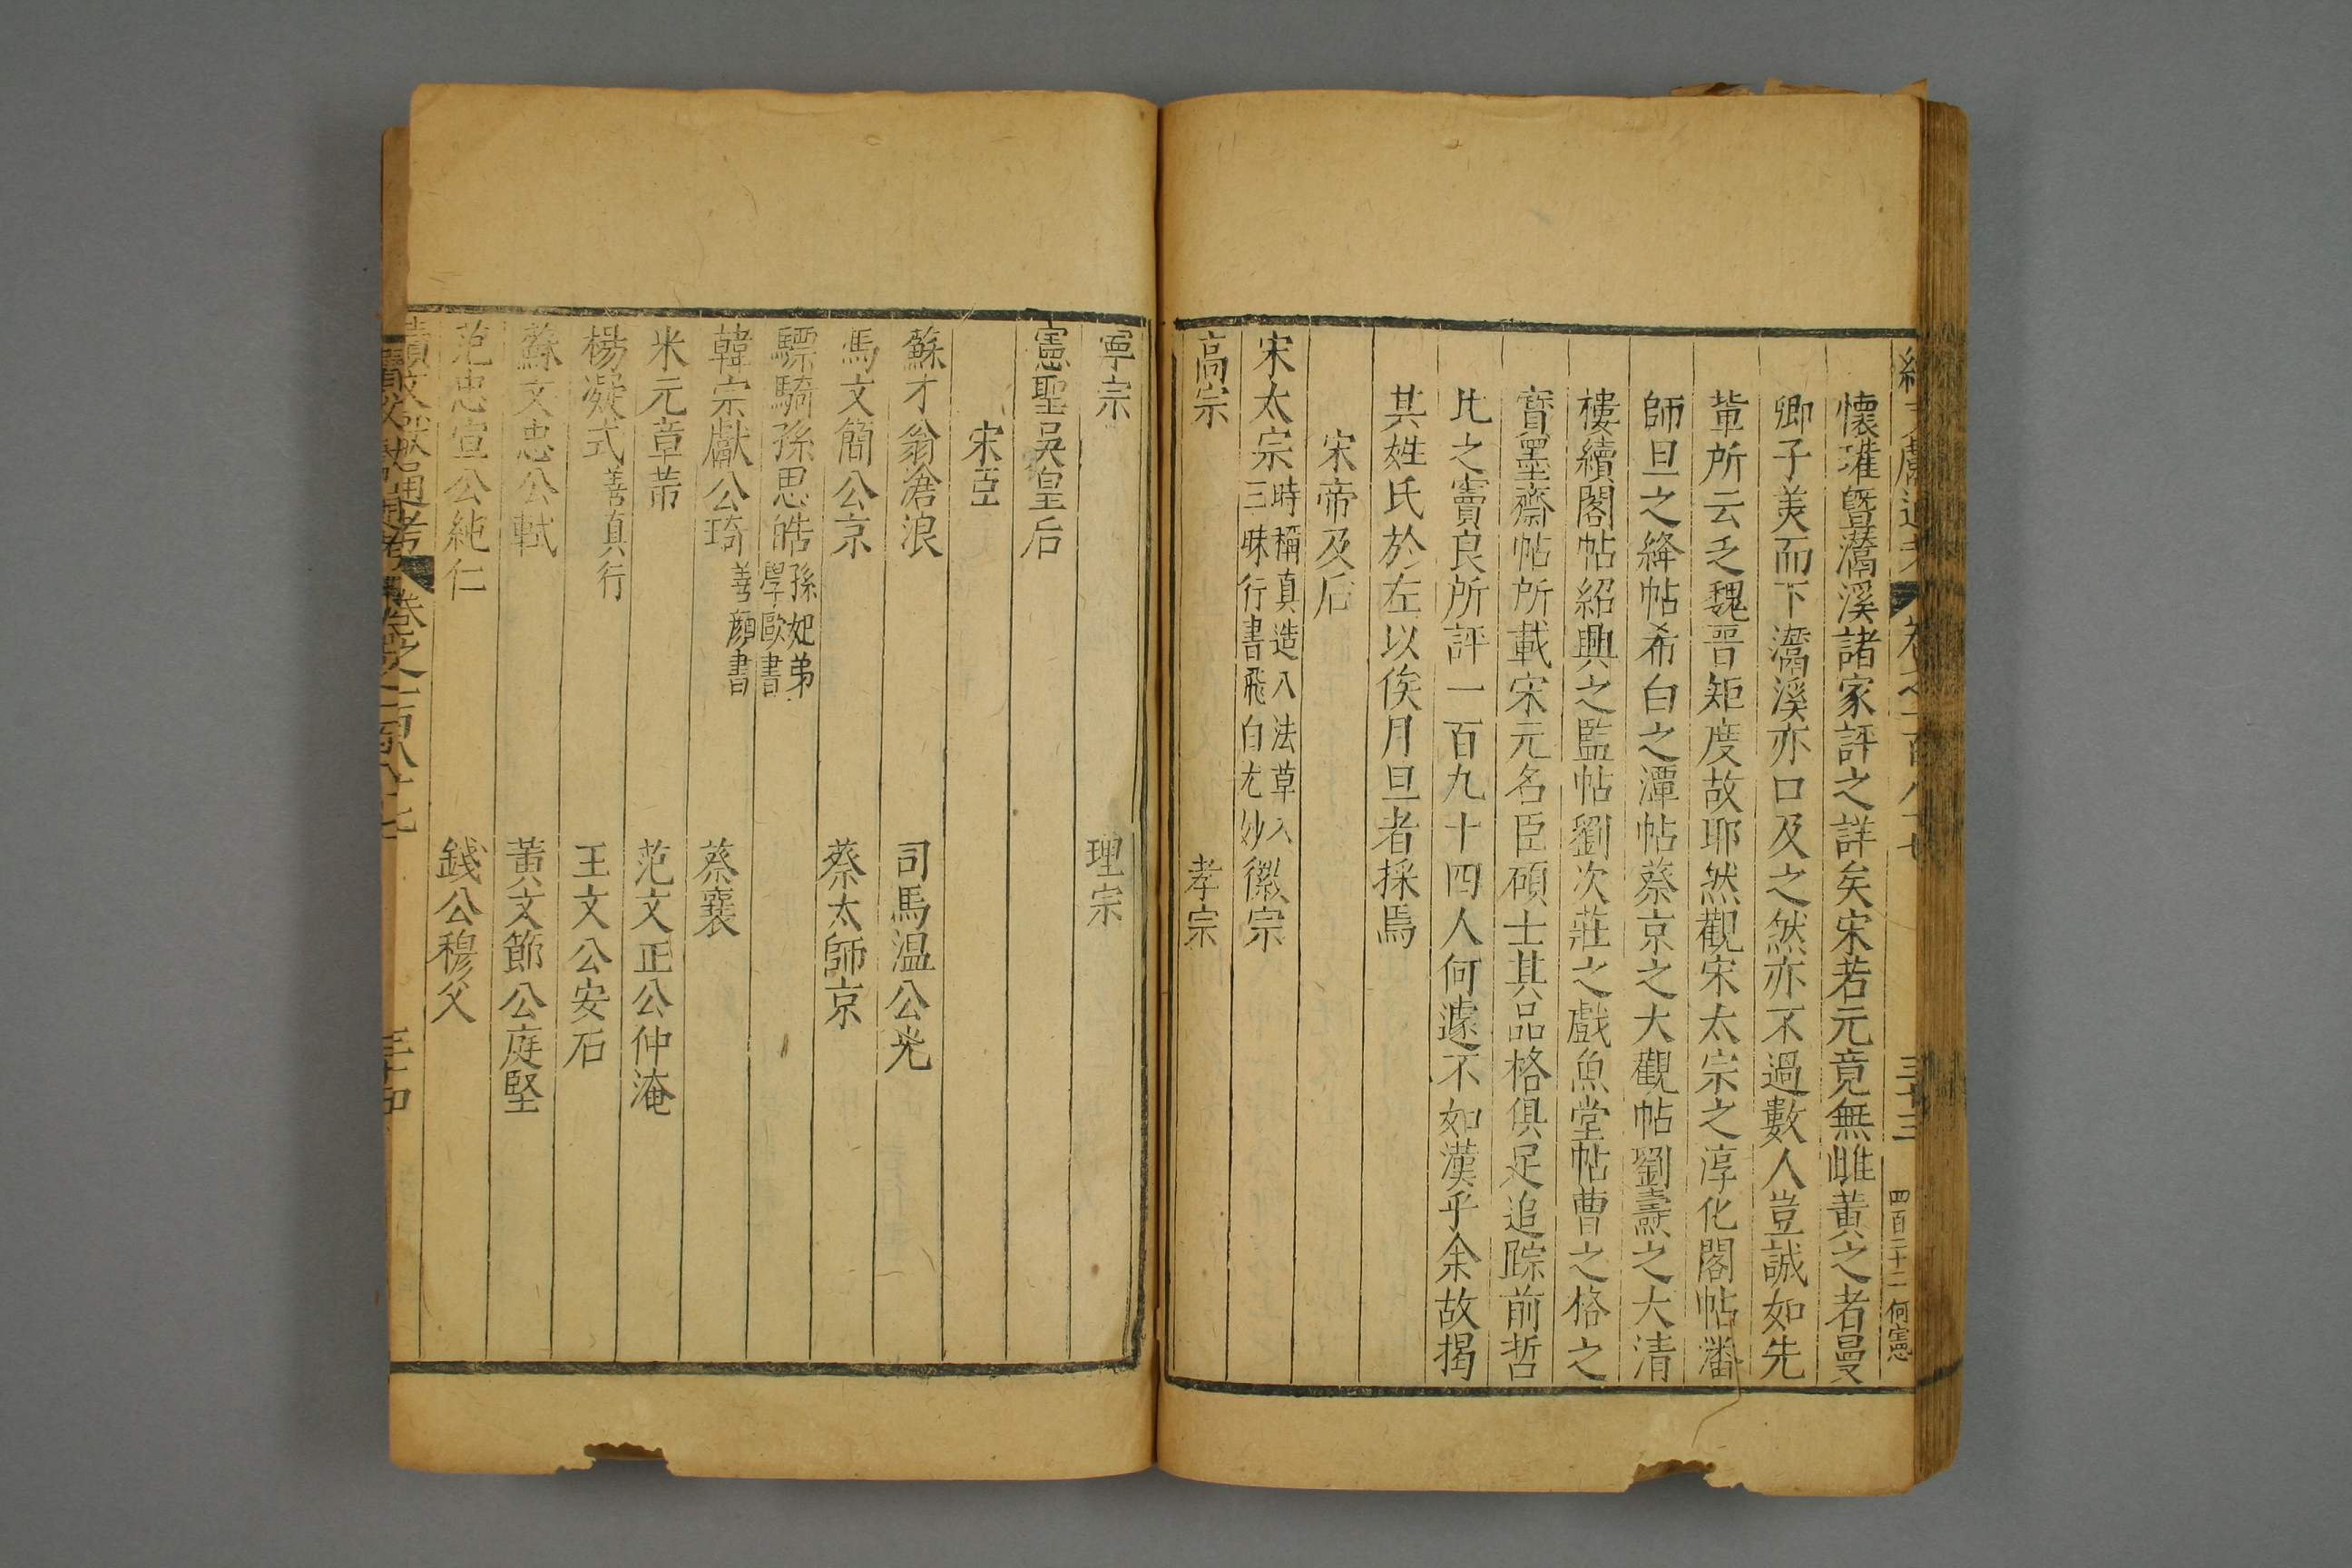 續文獻通考 卷之一百八十七 三十三 四百二十二 何憲
懷瓘曁灊溪諸家評之詳矣宋若元竟無雌黃之者曼
卿子美而下灊溪亦口及之然亦不過數人豈誠如先
軰所云乏魏晉矩度故耶然觀宋太宗之淳化閣帖潘
師旦之絳帖希白之潭帖蔡京之大觀帖劉燾之大清
樓續閣帖紹興之監帖劉次莊之戲魚堂帖曹之格之
寶墨齋帖所載宋元名臣碩士其品格俱足追踪前哲
比之竇良所評一百九十四人何遽不如漢乎余故揭
其姓氏於左以俟月旦者採焉
宋帝及后
宋太宗 時稱真造八法草入三昧行書飛白尤妙 徽宗
高宗 孝宗
寧宗 理宗
憲聖吳皇后
宋臣
蘇才翁滄浪 司馬温公光
馮文簡公京 蔡太師京
驃騎孫思皓 孫妃弟學歐書
韓宗獻公琦 善顔書 蔡襄
米元章芾 范文正公仲淹
楊凝式 善真行 王文公安石
蘇文忠公軾 黃文節公庭堅
范忠宣公純仁 錢公穆父
續文獻通考 卷之一百八十七 三十四